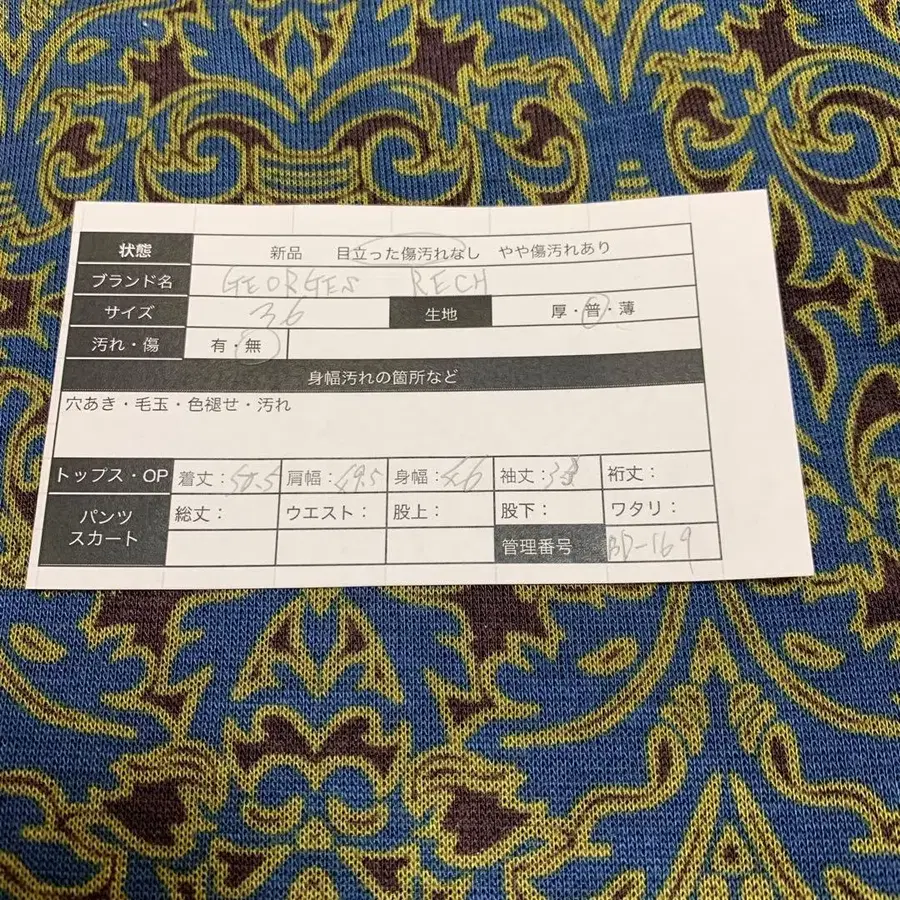 状態 新品 目立った傷汚れなし やや傷汚れあり
ブランド名 GEORGES RECH
サイズ 36 生地 厚・普・薄
汚れ・傷 有・無
身幅汚れの箇所など
穴あき・毛玉・色褪せ・汚れ
トップス・OP 着丈： 肩幅： 身幅：46 袖丈： 裄丈：
パンツ スカート 総丈： ウエスト： 股上： 股下： ワタリ：
管理番号 BD-169